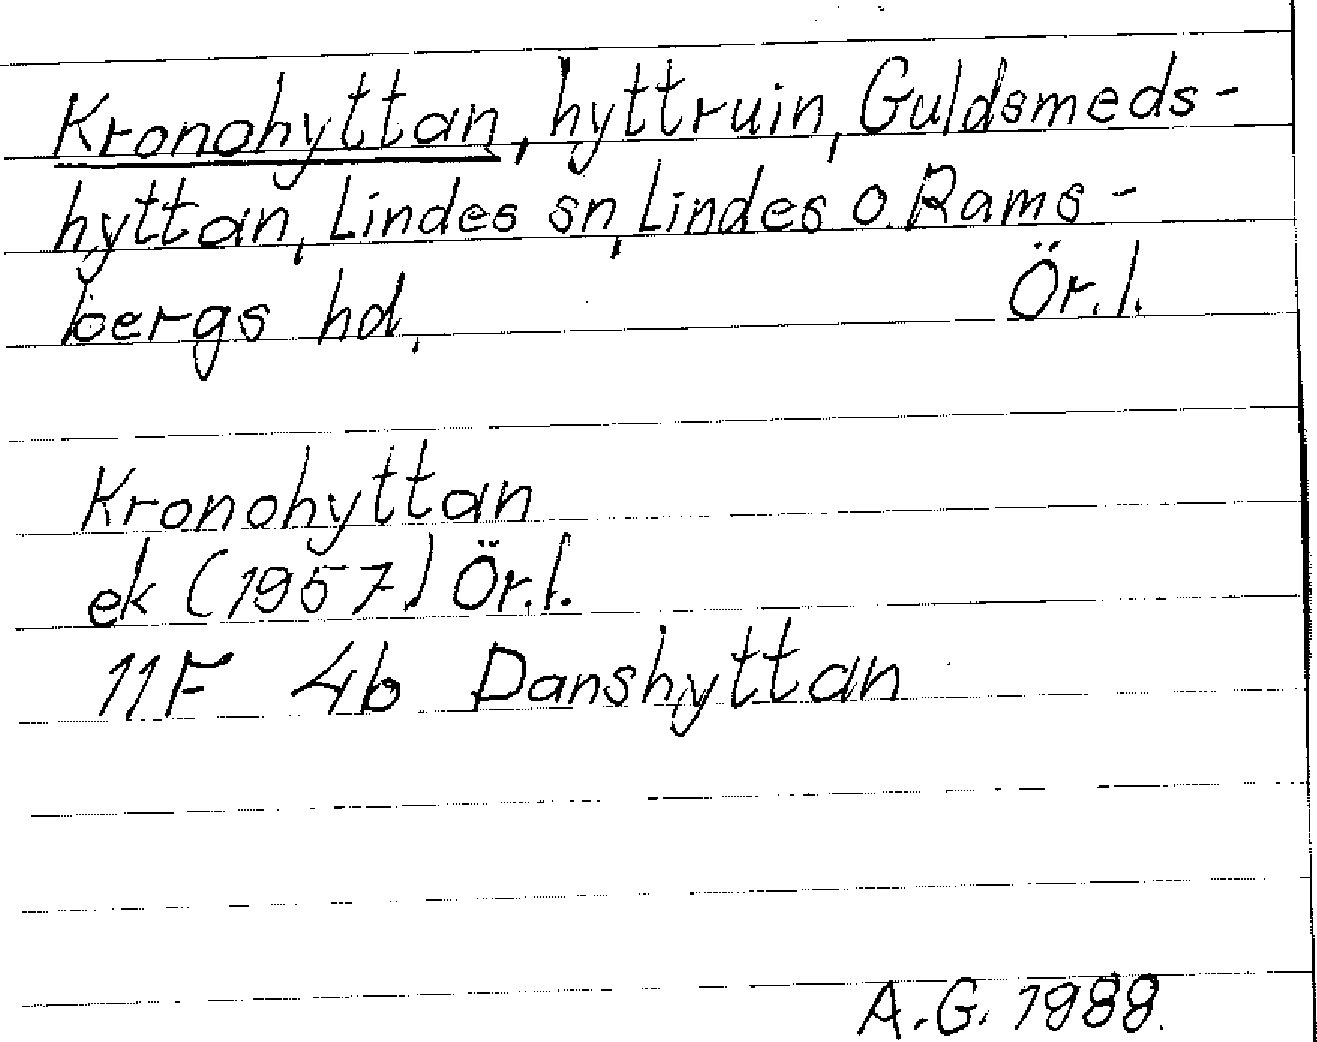 Kronohyttan, hyttruin, Guldsmeds-
hyttan, Lindes sn, Lindes o. Rams-
bergs hd. Ör.l.
Kronohyttan
ek (1957) Ör.l.
11F 4b Danshyttan
A.G. 1988.